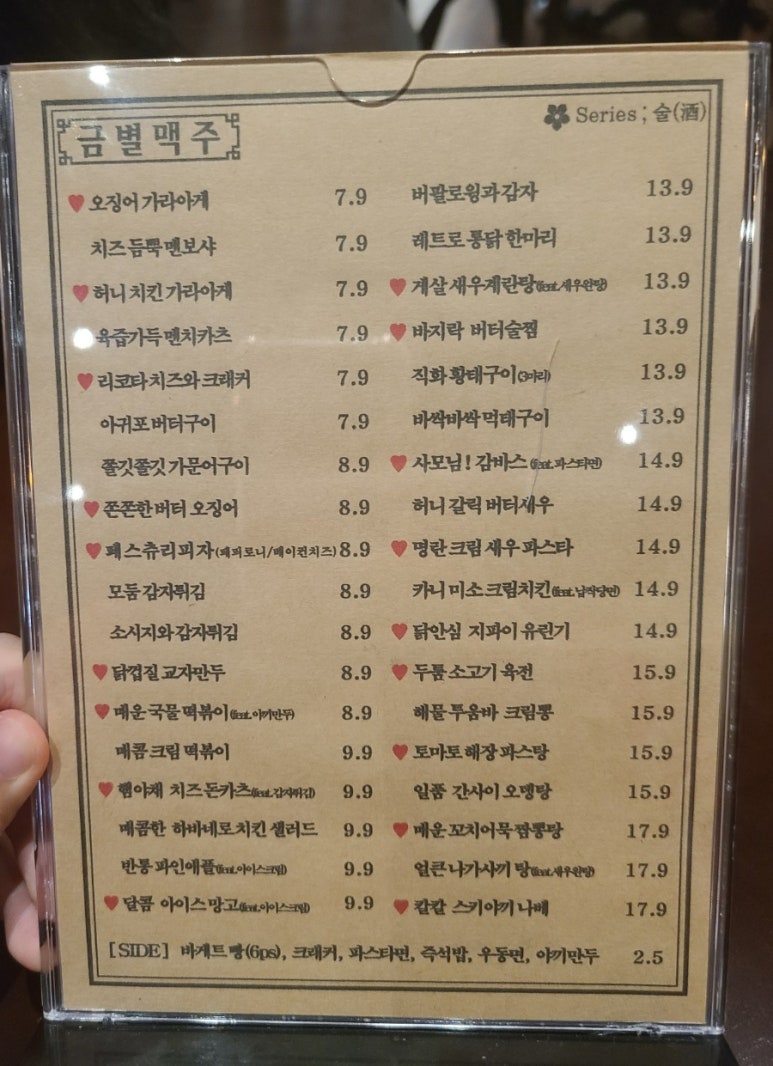 금별맥주
Series ; 술(酒)
♥ 오징어 가라아게 7.9
치즈 듬뿍 멘보샤 7.9
♥ 허니 치킨 가라아게 7.9
육즙가득 멘치카츠 7.9
♥ 리코타 치즈와 크래커 7.9
아귀포 버터구이 7.9
쫄깃쫄깃 가문어구이 8.9
♥ 쫀쫀한 버터 오징어 8.9
♥ 패스츄리 피자(페퍼로니/베이컨치즈) 8.9
모둠 감자튀김 8.9
소시지와 감자튀김 8.9
♥ 닭껍질 교자만두 8.9
♥ 매운 국물 떡볶이(feat.야끼만두) 8.9
매콤 크림 떡볶이 9.9
♥ 햄야채 치즈 돈카츠(feat.감자튀김) 9.9
매콤한 하바네로 치킨 샐러드 9.9
반통 파인애플(feat.아이스크림) 9.9
♥ 달콤 아이스 망고(feat.아이스크림) 9.9
버팔로윙과 감자 13.9
레트로 통닭 한마리 13.9
♥ 게살 새우계란탕(feat.새우완탕) 13.9
♥ 바지락 버터술찜 13.9
직화 황태구이(3마리) 13.9
바싹바싹 먹태구이 13.9
♥ 사모님! 감바스(feat.파스타면) 14.9
허니 갈릭 버터새우 14.9
♥ 명란 크림 새우 파스타 14.9
카니 미소 크림치킨(feat.납작당면) 14.9
♥ 닭안심 지파이 유린기 14.9
♥ 두툼 소고기 육전 15.9
해물 투움바 크림뽕 15.9
♥ 토마토 해장 파스탕 15.9
일품 간사이 오뎅탕 15.9
♥ 매운 꼬치어묵 짬뽕탕 17.9
얼큰 나가사끼 탕(feat.새우완탕) 17.9
♥ 칼칼 스키야끼 나베 17.9
[SIDE] 바게트 빵(6ps), 크래커, 파스타면, 즉석밥, 우동면, 야끼만두 2.5